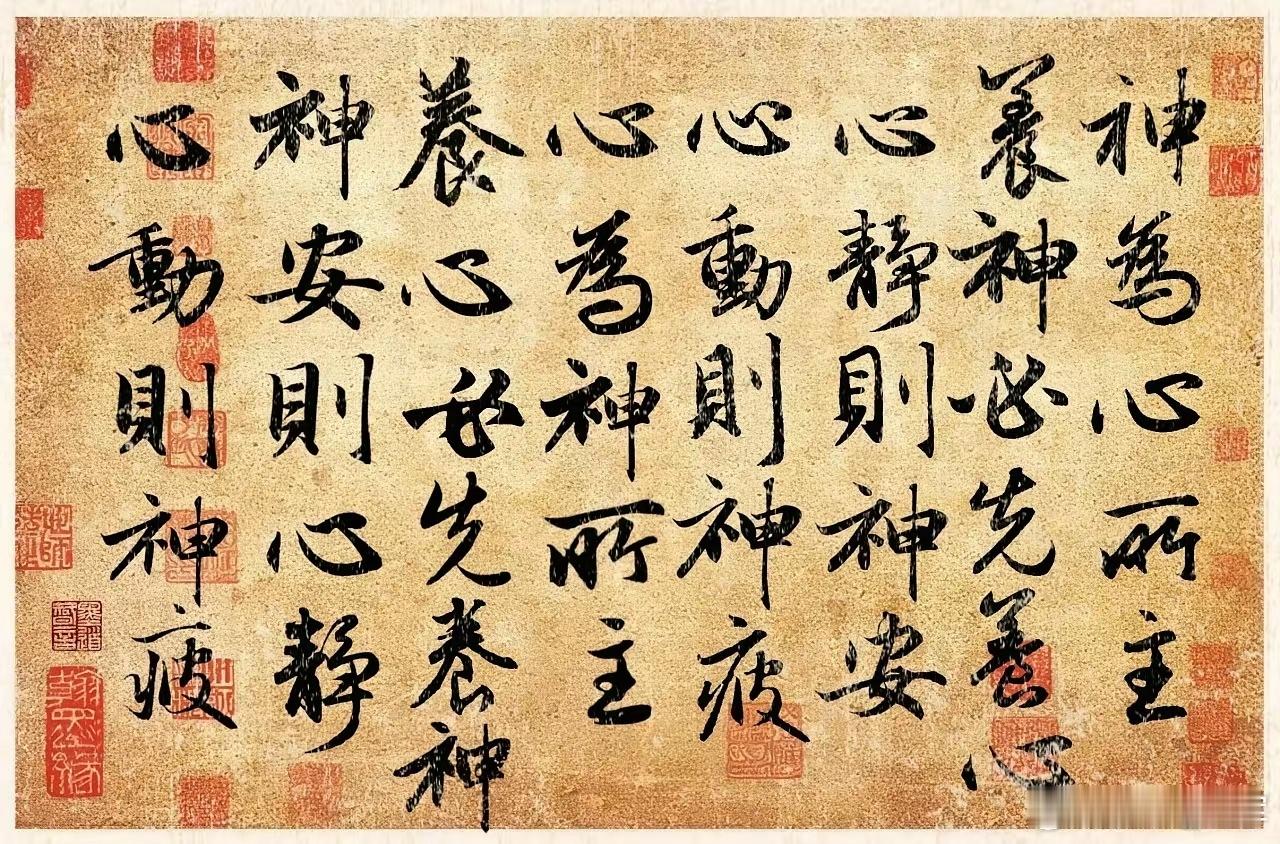 神為心所主
養神必先養心
心靜則神安
心動則神疲
心為神所主
養心必先養神
神安則心靜
心動則神疲